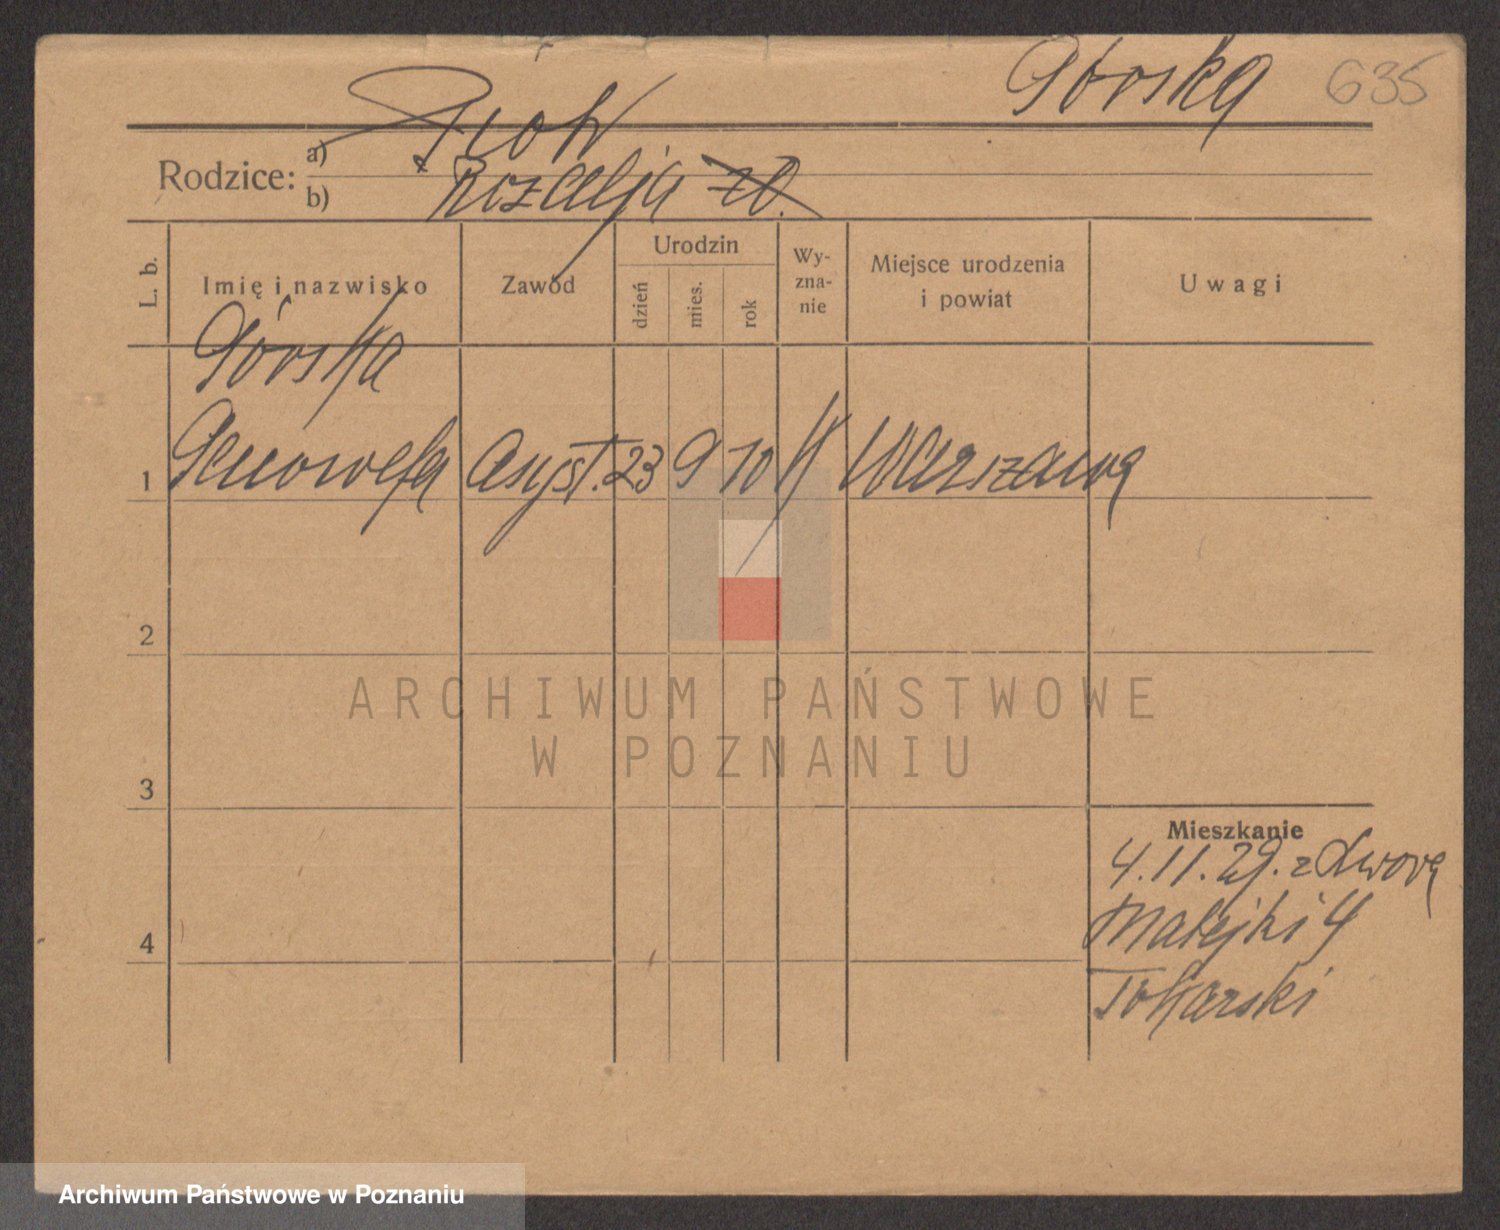 Górska 635
Rodzice: a) Piotr
b) Rozalja
L. b. Imię i nazwisko Zawód Urodzin dzień mies. rok Wy-zna-nie Miejsce urodzenia i powiat Uwagi
Górska
1 Genowefa asyst. 23 9 10 K Warszawa
2
ARCHIWUM PAŃSTWOWE
W POZNANIU
3
Mieszkanie
4.11.29. z
Matejki 4
4
Tokarski
Archiwum Państwowe w Poznaniu